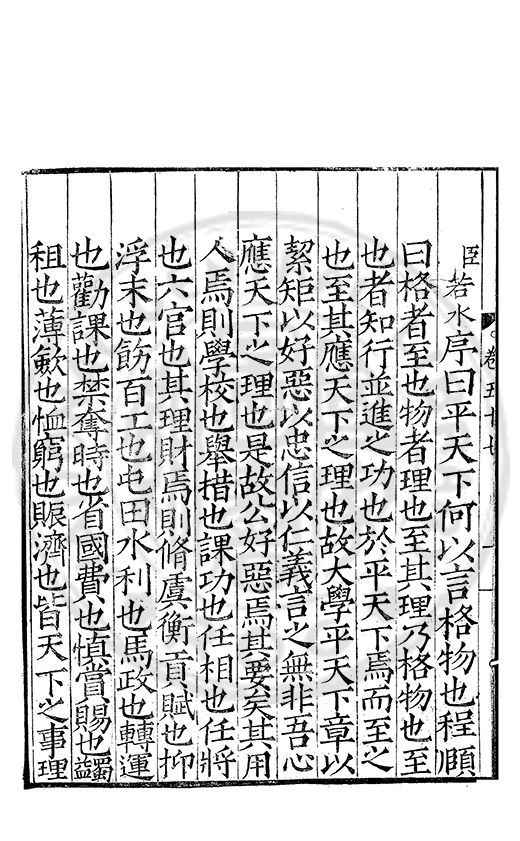 臣若水序曰平天下何以言格物也程頤
曰格者至也物者理也至其理乃格物也至
也者知行並進之功也於平天下焉而至之
也至其應天下之理也故大學平天下章以
絜矩以好惡以忠信以仁義言之無非吾心
應天下之理也是故公好惡焉其要矣其用
人焉則學校也舉措也課功也任相也任將
也六官也其理財焉則脩虞衡貢賦也抑
浮末也飭百工也屯田水利也馬政也轉運
也勸課也禁奪時也省國費也慎賞賜也蠲
租也薄斂也恤窮也賑濟也皆天下之事理
卷五十七